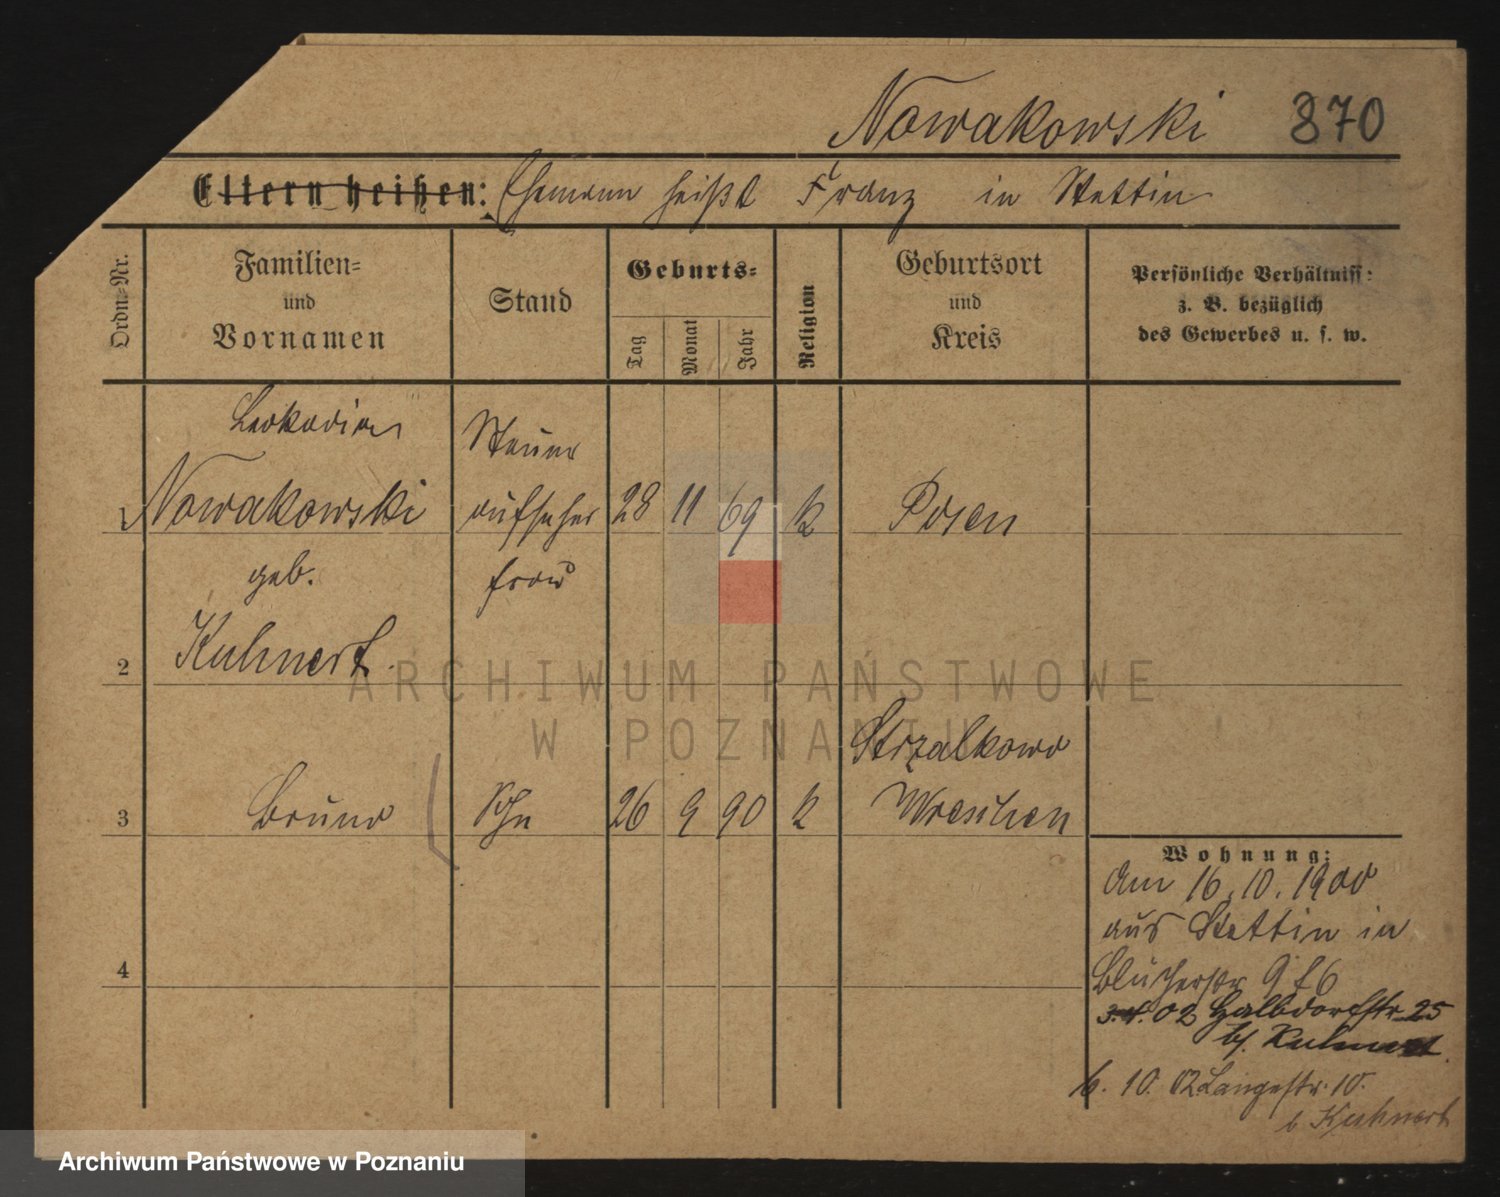 Nowakowski 870
Eltern heißen: Ehemann heißt Franz in Stettin
Ordn.-Nr.
Familien-
und
Vornamen
Stand
Geburts-
Tag
Monat
Jahr
Religion
Geburtsort
und
Kreis
Persönliche Verhältniss:
z. B. bezüglich
des Gewerbes u. s. w.
Leokadia
Steuer
1 Nowakowski aufseher 28 11 69 k Posen
geb. frau
2 Kuhnert
Strzalkowo
3 Bruno Sohn 26 9 90 k Wreschen
Wohnung:
Am 16.10.1900
aus Stettin in
4
Blücherstr 9 b
3.4.02 Halbdorfstr 25
bj. Kuhnert
6.10.02 Langestr. 10.
b Kuhnert
ARCHIWUM PAŃSTWOWE
W POZNANIU
Archiwum Państwowe w Poznaniu